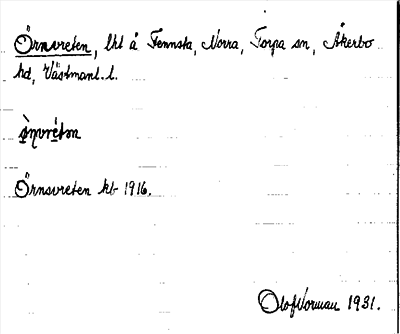 Örnsvreten, lht å Fennsta, Norra, Torpa sn, Åkerbo
hd, Västmanl. l.
Örnsvreten kb 1916.
Olof Norman 1931.